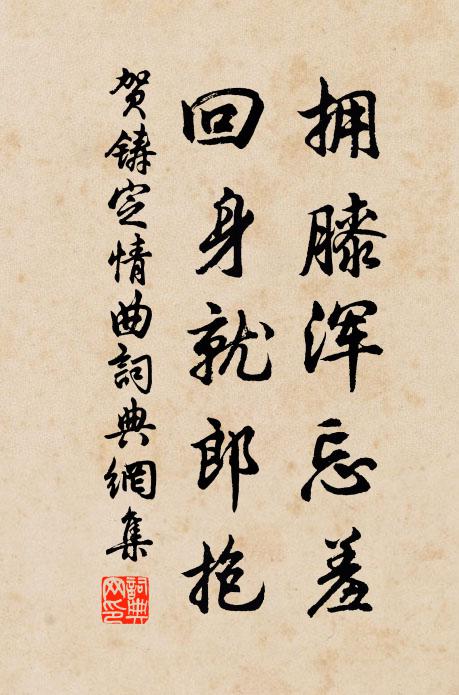 拥膝浑忘羞
回身就郎抱
贺铸定情曲詞典網集
詞典网印